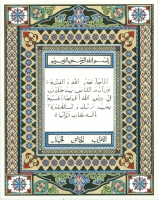 بسم الله الرحمن الرحيم
إذا جاء نصر الله والفتح
ورأيت الناس يدخلون
في دين الله أفواجا فسبح
بحمد ربك واستغفره
إنه كان توابا